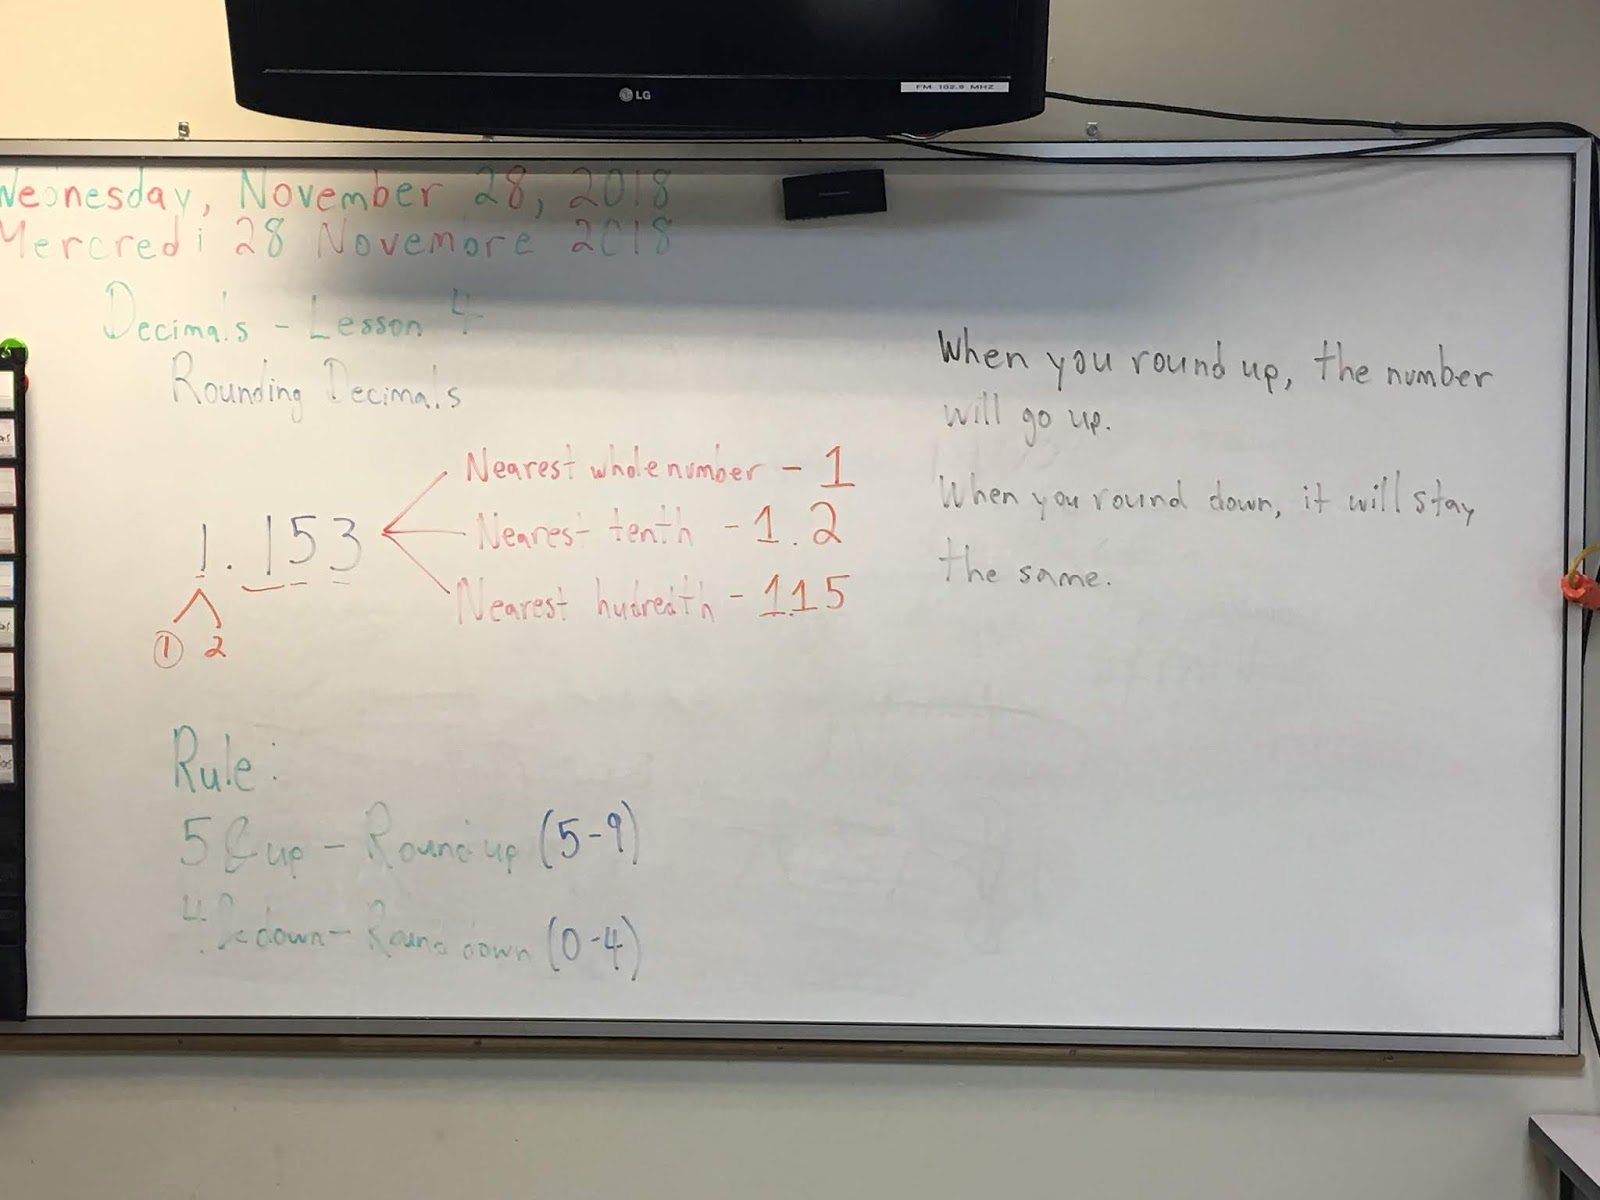 LG
FM 102.9 MHZ
Wednesday, November 28, 2018
Mercredi 28 Novembre 2018
Decimals - Lesson 4
Rounding Decimals
1.153
1 2
Nearest whole number - 1
Nearest tenth - 1.2
Nearest hudredth - 1.15
Rule:
5 & up - Round up (5-9)
4 & down - Round down (0-4)
When you round up, the number
will go up.
When you round down, it will stay
the same.